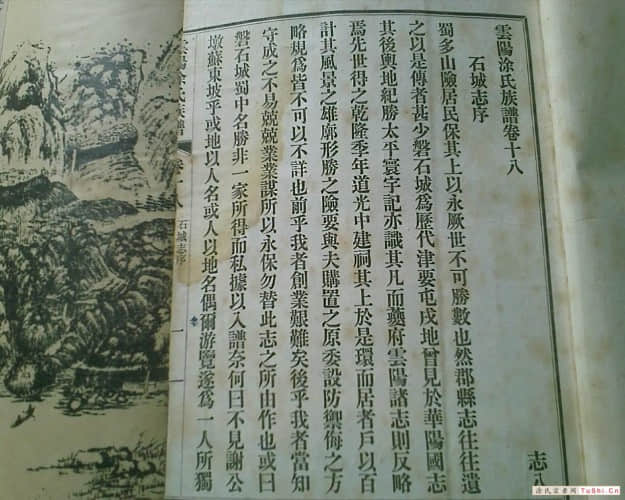 雲陽涂氏族譜卷十八
石城志序
蜀多山險居民保其上以永厥世不可勝數也然郡縣志往往遺
之以是傳者甚少磐石城為歷代津要屯戍地曾見於華陽國志
其後輿地紀勝太平寰宇記亦識其凡而夔府雲陽諸志則反略
焉先世得之乾隆季年道光中建祠其上於是環而居者戶以百
計其風景之雄廓形勝之險要與夫購置之原委設防禦侮之方
略規為皆不可以不詳也前乎我者創業艱難矣後乎我者當知
守成之不易兢兢業業謀所以永保勿替此志之所由作也或曰
磐石城蜀中名勝非一家所得而私據以入譜奈何曰不見謝公
墩蘇東坡乎或地以人名或人以地名偶爾游覽遂為一人所獨
雲陽涂氏族譜
卷十八
石城志序
一
志八
涂氏宗亲网 TuShi.Cn